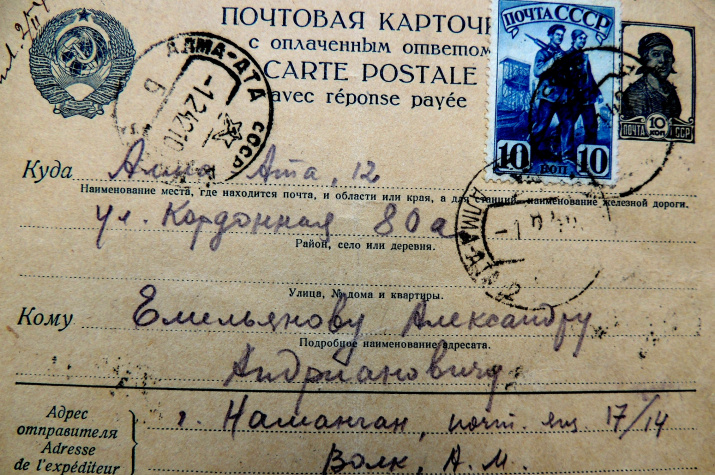 ПОЧТОВАЯ КАРТОЧК
с оплаченным ответом
CARTE POSTALE
avec réponse payée
ПОЧТА СССР
10 10
КОП
10
КОП
ПОЧТА СССР
АЛМА-АТА СССР
-1242
Куда Алма Ата, 12
Наименование места, где находится почта, и области или края, а для станций, наименование железной дороги.
ул. Кордонная 80а
Район, село или деревня.
АЛМА-АТА
Улица, № дома и квартиры.
Кому Емельянову Александру
Подробное наименование адресата.
Андриановичу
Адрес
отправителя
Adresse
de l'expéditeur
г. Наманган, почт. ящ 17/14
Волк, А. М.